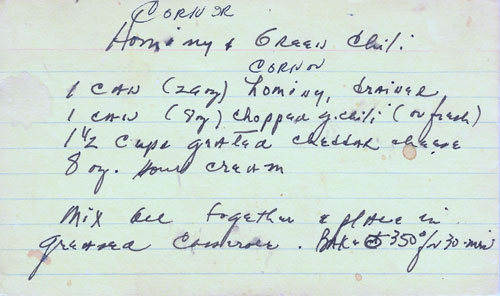 Corn or
Hominy & Green Chili
Corn or
1 can (29oz) hominy, drained
1 can (8oz) chopped g. chili (or fresh)
1 1/2 cups grated cheddar cheese
8 oz. sour cream
Mix all together & place in
greased casserole. Bake @ 350° for 30-min